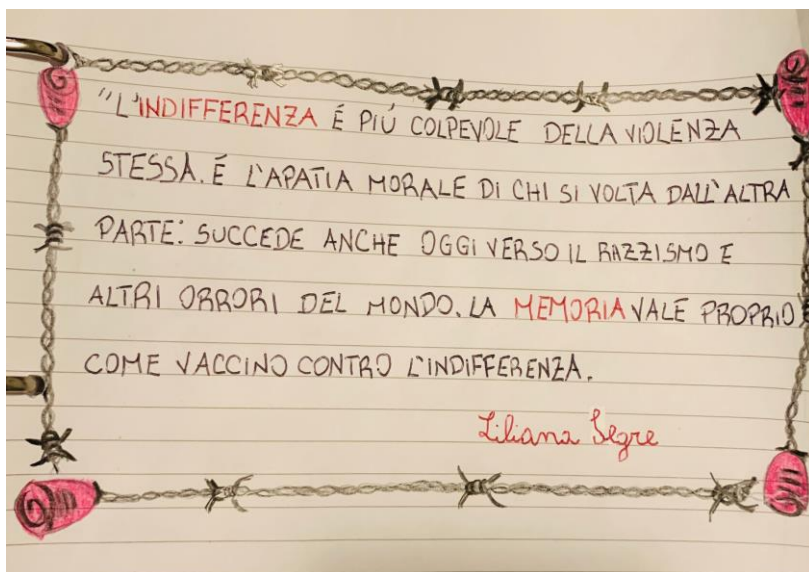 "L'INDIFFERENZA É PIÚ COLPEVOLE DELLA VIOLENZA
STESSA. É L'APATIA MORALE DI CHI SI VOLTA DALL'ALTRA
PARTE: SUCCEDE ANCHE OGGI VERSO IL RAZZISMO E
ALTRI ORRORI DEL MONDO. LA MEMORIA VALE PROPRIO
COME VACCINO CONTRO L'INDIFFERENZA.
Liliana Segre